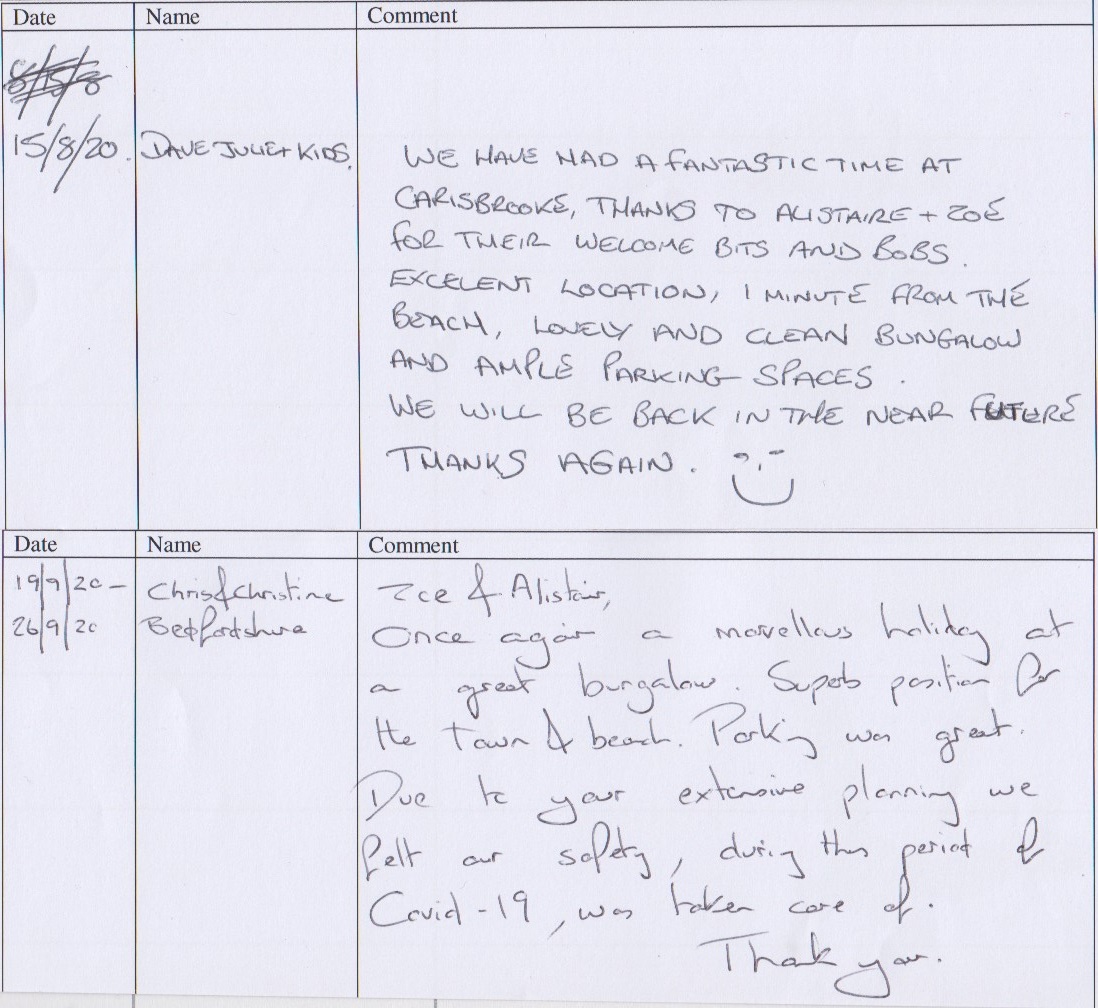 Date Name Comment
15/8/20. DAVE JULIE + KIDS.
WE HAVE HAD A FANTASTIC TIME AT
CARISBROOKE, THANKS TO ALISTAIRE + ZOE
FOR THEIR WELCOME BITS AND BOBS.
EXCELENT LOCATION, 1 MINUTE FROM THE
BEACH, LOVELY AND CLEAN BUNGALOW
AND AMPLE PARKING SPACES.
WE WILL BE BACK IN THE NEAR FUTURE
THANKS AGAIN.
Date Name Comment
19/9/20 – Chris & Christine Zoe & Alistair,
26/9/20 Bedfordshire Once again a marvellous holiday at
a great bungalow. Superb position for
the town & beach. Parking was great.
Due to your extensive planning we
felt our safety, during this period of
Covid-19, was taken care of.
Thank you.